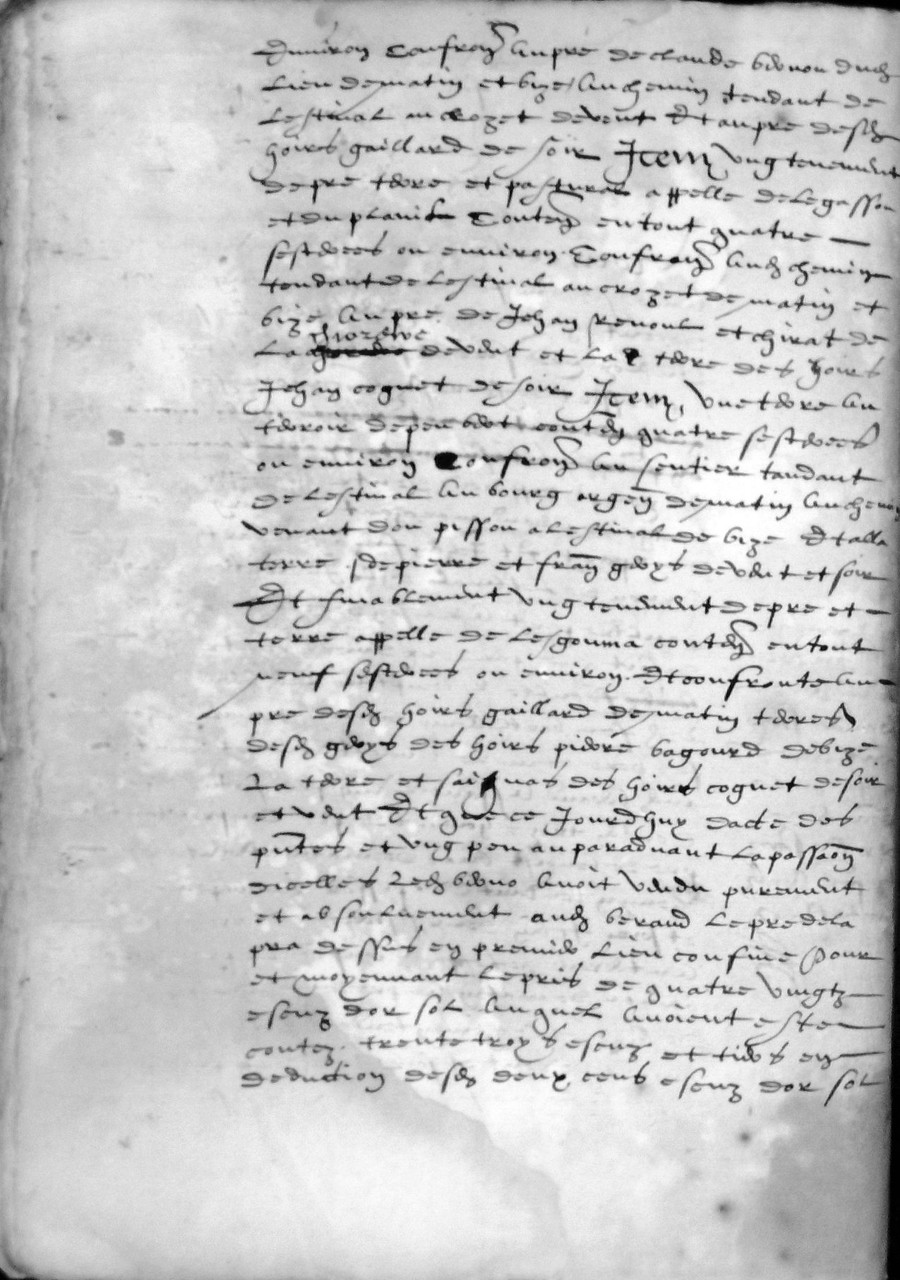 Environ Confron au pre de claude brono dud
Lieu de matin et bize au chemin tendant de
Lestival au crozet de vent Et au pre desd
hoirs gaillard de soir Item ung tenement
de pre terre et pastural appelle de legasson
et du planit Conten en tout quatre
sesterees ou environ Confron aud chemin
tendant de Lestival au crozet de matin et
bize au pre de Jehan Renoul et chirat de
La de vent et La terre des hoirs
Jehan coguet de soir Item, une terre au
terroir de conten quatre sesterees
ou environ Confron au sentier tandant
de Lestival au bourg argen de matin au chemin
venant dou pisson a lestival de bize Et a la
terre de pierre et fran groys de vent et soir
Et finablement ung tenement de pre et
terre appelle de Lesgouma conten en tout
neuf sesterees ou environ. Et confronte au
pre desd hoirs gaillard de matin terres
desd groys des hoirs pierre bagourd de bize
La terre et saignas des hoirs coguet de soir
et vent Et que ce Jourdhuy dacte des
pntes et ung peu auparadvant La passaon
dicelles Led brono avoit vendu purement
et absoluement aud beraud Le pre de la
pra dessus en premier Lieu confine pour
et moyennant Le pris de quatre vingtz
escuz dor sol auquel avoient este
contez trente troys escuz et tiers en
deduction desd deux cens escuz dor sol